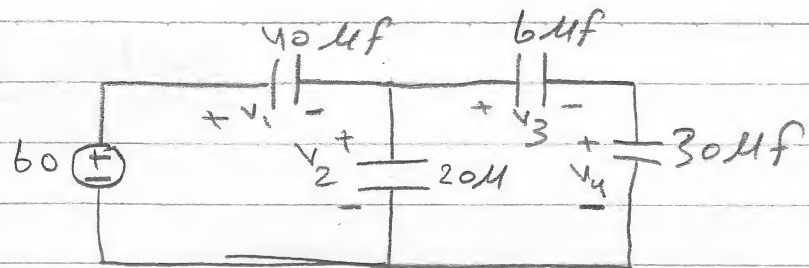 40 μf 6 μf
+ V1 - + V3 -
60 + - V2 + - 20μ + V4 - 30 μf